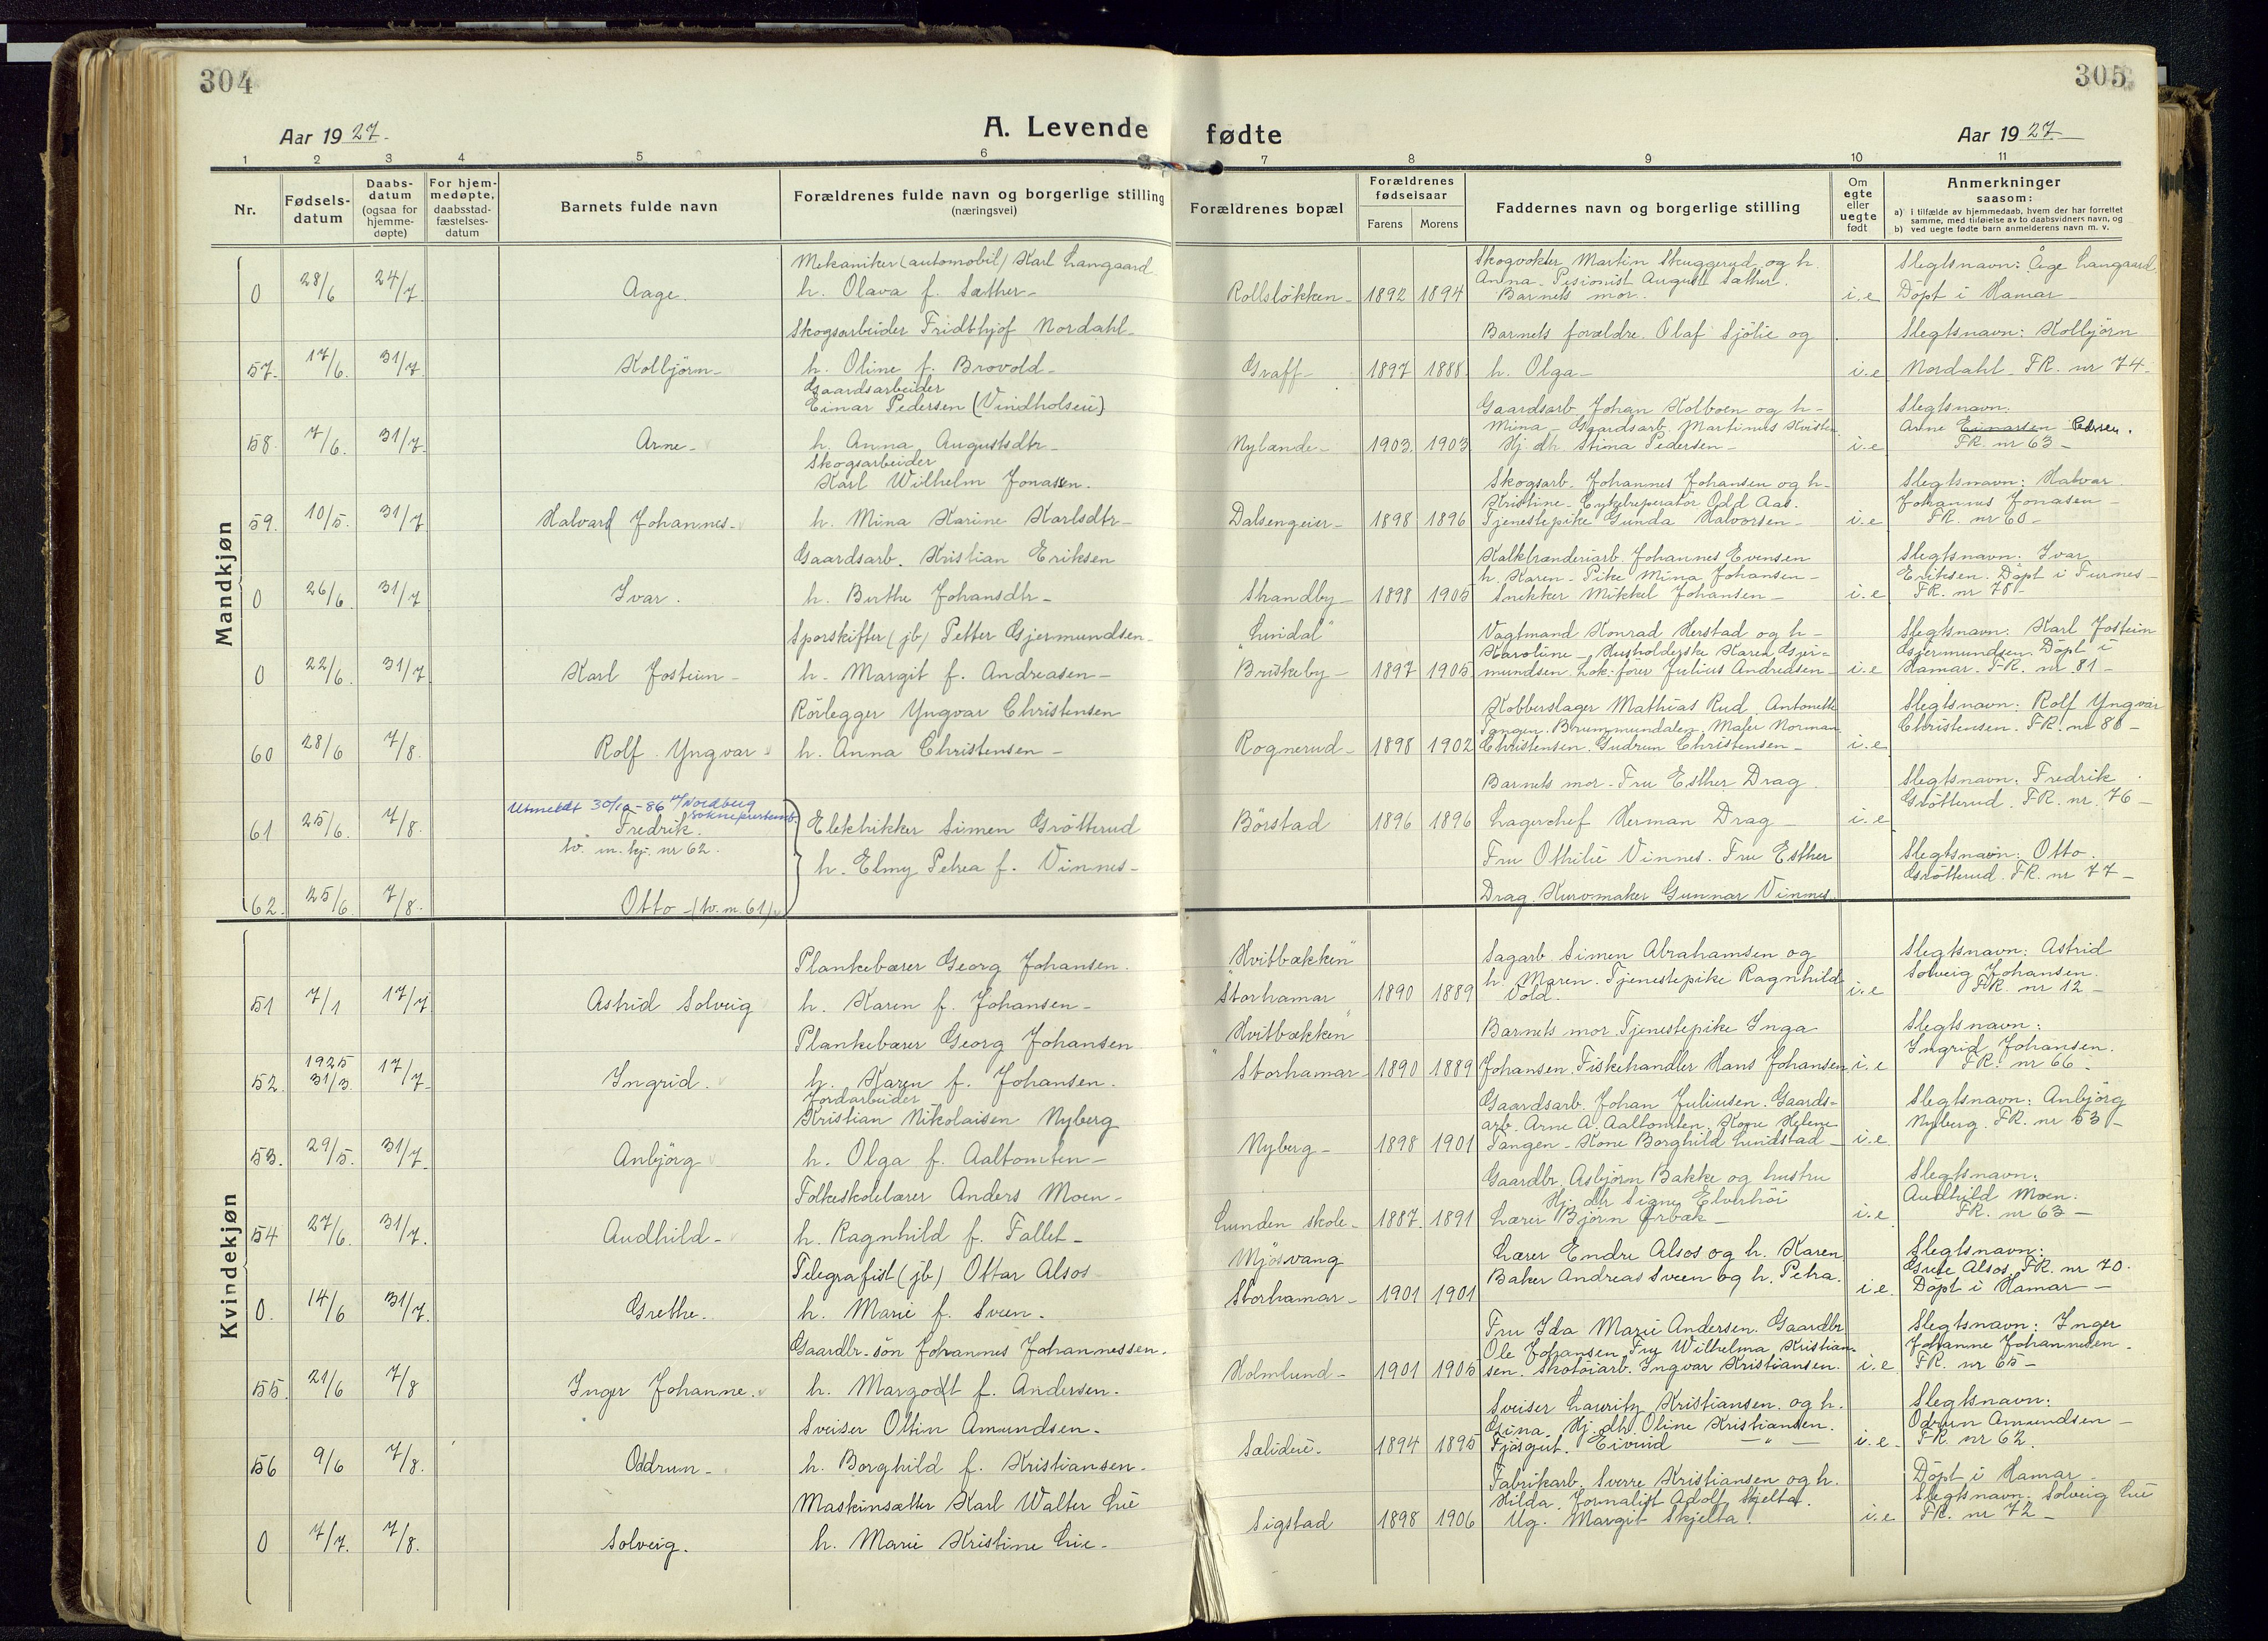 304
305
Aar 1927.
A. Levende fødte
Aar 1927
1 2 3 4 5 6 7 8 9 10 11
Nr.
Fødsels-datum
Daabs-datum (ogsaa for hjemme-døpte)
For hjem-medøpte, daabsstad-fæstelses-datum
Barnets fulde navn
Forældrenes fulde navn og borgerlige stilling (næringsvei)
Forældrenes bopæl
Forældrenes fødselsaar
Farens
Morens
Faddernes navn og borgerlige stilling
Om egte eller uegte født
Anmerkninger saasom:
a) i tilfælde av hjemmedaab, hvem der har forrettet samme, med tilføielse av to daabsvidners navn, og
b) ved uegte fødte barn anmelderens navn m. v.
Mandkjøn
Mekaniker (automobil) Karl Langaard
0 28/6 24/7. Aage. h. Olava f. Sæther- Rollsløkken- 1892 1894
Skogvokter Martin Skuggerud og h.
Anna- Pesionist August Sæther.
Barnets mor. i.e
Slegtsnavn: Åge Langaard
Döpt i Hamar-
Skogsarbeider Fridthjof Nordahl-
57. 17/6. 31/7. Kolbjörn- h. Oline f. Brovold- Graff- 1897 1888
Barnets forældre. Olaf Sjölie og
h. Olga- i.e
Slegtsnavn: Kolbjörn
Nordahl- FR. nr 74-
Gaardsarbeider
Einar Pedersen (Vindholsen)
58. 7/6. 31/7. Arne- h. Anna Augustsdtr- Nylænde- 1903. 1903
Gaardsarb. Johan Kolboen og h-
Mina- Gaardsarb. Martinus Kristen
Hj. dh. Stina Pedersen- i.e
Slegtsnavn:
Arne Einarsen Pedersen.
FR. nr 63-
Skogsarbeider
Karl Wilhelm Jonassen.
59. 10/5. 31/7 Halvard Johannes- h. Mina Karine Karlsdtr- Dalsengeier- 1898 1896
Skogsarb. Johannes Johansen og h-
Kristine- Cykelreperatör Odd Aas.
Tjenestepike Gunda Halvorsen- i.e
Slegtsnavn: Halvar
Johannes Jonasen-
FR. nr 60-
Gaardsarb. Kristian Eriksen
0 26/6. 31/7 Ivar. h. Berthe Johansdtr- Strandby- 1898 1905
Kalkbrænderiarb. Johannes Evensen
h. Karen- Pike Mina Johansen-
Snekker Mikkel Johansen- i.e
Slegtsnavn: Ivar
Eriksen. Döpt i Furnes-
FR. nr 78-
Sporskifter (jb) Petter Gjermundsen-
0 22/6. 31/7 Karl Jostein- h. Margit f. Andreasen- "Lindal" Briskeby- 1897 1905
Vagtmand Konrad Herstad og h-
Karoline- Husholderske Karen Gjer=
mundsen. Lok.förer Julius Andreasen- i.e
Slegtsnavn: Karl Jostein
Gjermundsen. Döpt i
Hamar. FR. nr 81-
Rörlegger Yngvar Christensen
60 28/6 7/8. Rolf Yngvar h. Anna Christensen- Rognerud- 1898 1902
Kobberslager Mathias Rud. Antonette
Tangen. Brummundalen. Maler Norman
Christensen. Gudrun Christensen- i.e
Slegtsnavn: Rolf Yngvar
Christensen. FR. nr 86-
Utmeldt 30/10-86 Nordberg
sokneprestemb.
61 25/6. 7/8. Fredrik. Elektrikker Simen Gröttrud Börstad 1896 1896
tv. m. kj. nr 62.
Barnets mor. Fru Esther Drag
Lagerchef Herman Drag- i.e
Slegtsnavn: Fredrik
Gröttrud. FR. nr. 76-
h. Elmy Petrea f. Vinnes-
62. 25/6 7/8. Otto-(tv. m. 61)
Fru Othilie Vinnes. Fru Esther
Drag. Kurvmaker Gunnar Vinnes.
Slegtsnavn: Otto.
Gröttrud. FR. nr 77-
Kvindekjøn
Plankebærer Georg Johansen.
51 7/1 17/7 Astrid Solveig h. Karen f. Johansen- "Hvitbækken" Storhamar 1890 1889
Sagarb Simen Abrahamsen og
h. Maren. Tjenestepike Ragnhild
Vold. i.e
Slegtsnavn: Astrid
Solveig Johansen.
FR. nr 12-
Plankebærer Georg Johansen
52. 1925 31/3. 17/7- Ingrid. h. Karen f. Johansen. "Hvitbækken" Storhamar- 1890 1889
Barnets mor. Tjenestepike Inga
Johansen. Fiskehandler Hans Johansen. i.e
Slegtsnavn:
Ingrid Johansen.
FR. nr 66-
Jordarbeider
Kristian Nikolaisen Nyberg
53. 29/5. 31/7. Anbjörg h. Olga f. Aaltomten- Nyberg- 1898 1901
Gaardsarb. Johan Juliusen. Gaards=
arb. Arne A. Aaltomten. Kone Helene
Tangen- Kone Borghild Lundstad- i.e
Slegtsnavn: Anbjörg
Nyberg. FR. nr 53-
Folkeskolelærer Anders Moen-
54 27/6. 31/7. Audhild- h. Ragnhild f. Fallet- Lunden skole- 1887. 1891
Gaardbr. Asbjörn Bakke og hustru
Hj. dtr Signe Elverhöi
Lærer Björn Ørbæk- i.e
Slegtsnavn:
Audhild Moen.
FR. nr 63-
Telegrafist (jb) Ottar Alsos
0. 14/6 31/7. Grethe. h. Marie f. Sveen. Mjösvang Storhamar- 1901 1901
Lærer Endre Alsos og h. Karen
Baker Andreas Sveen og h. Petra. i.e.
Slegtsnavn:
Grete Alsos FR. nr 70.
Döpt i Hamar-
Gaardbr-sön Johannes Johannessen.
55. 21/6 7/8 Inger Johanne. h. Margodt f. Andersen. Holmlund- 1901 1905
Fru Ida Marie Andersen. Gaardbr
Ole Johansen. Fru Wilhelma Kristian-
sen. Skotöiarb. Ingvar Kristiansen. i.e
Slegtsnavn: Inger
Johanne Johannesen.
FR. nr 65-
Sveiser Oltin Amundsen.
56 9/6 7/8. Oddrun- h. Borghild f. Kristiansen. Sælidere. 1894 1895
Sveiser Lauritz Kristiansen og h.
Gina. Hj. dh. Oline Kristiansen.
Fjösgut. Eivind -"- i.e.
Slegtsnavn:
Odrun Amundsen-
FR. nr 62.
Maskinsætter Karl Walter Lie
0 7/7. 7/8. Solveig. h. Marie Kristine Lie. Sigstad 1898 1906
Fabrikarb. Sverre Kristiansen og h.
Hilda. Jornalist Adolf Skjelta.
Ug. Margit Skjelta. i.e
Döpt i Hamar-
Slegtsnavn: Solveig Lie
FR. nr 72-